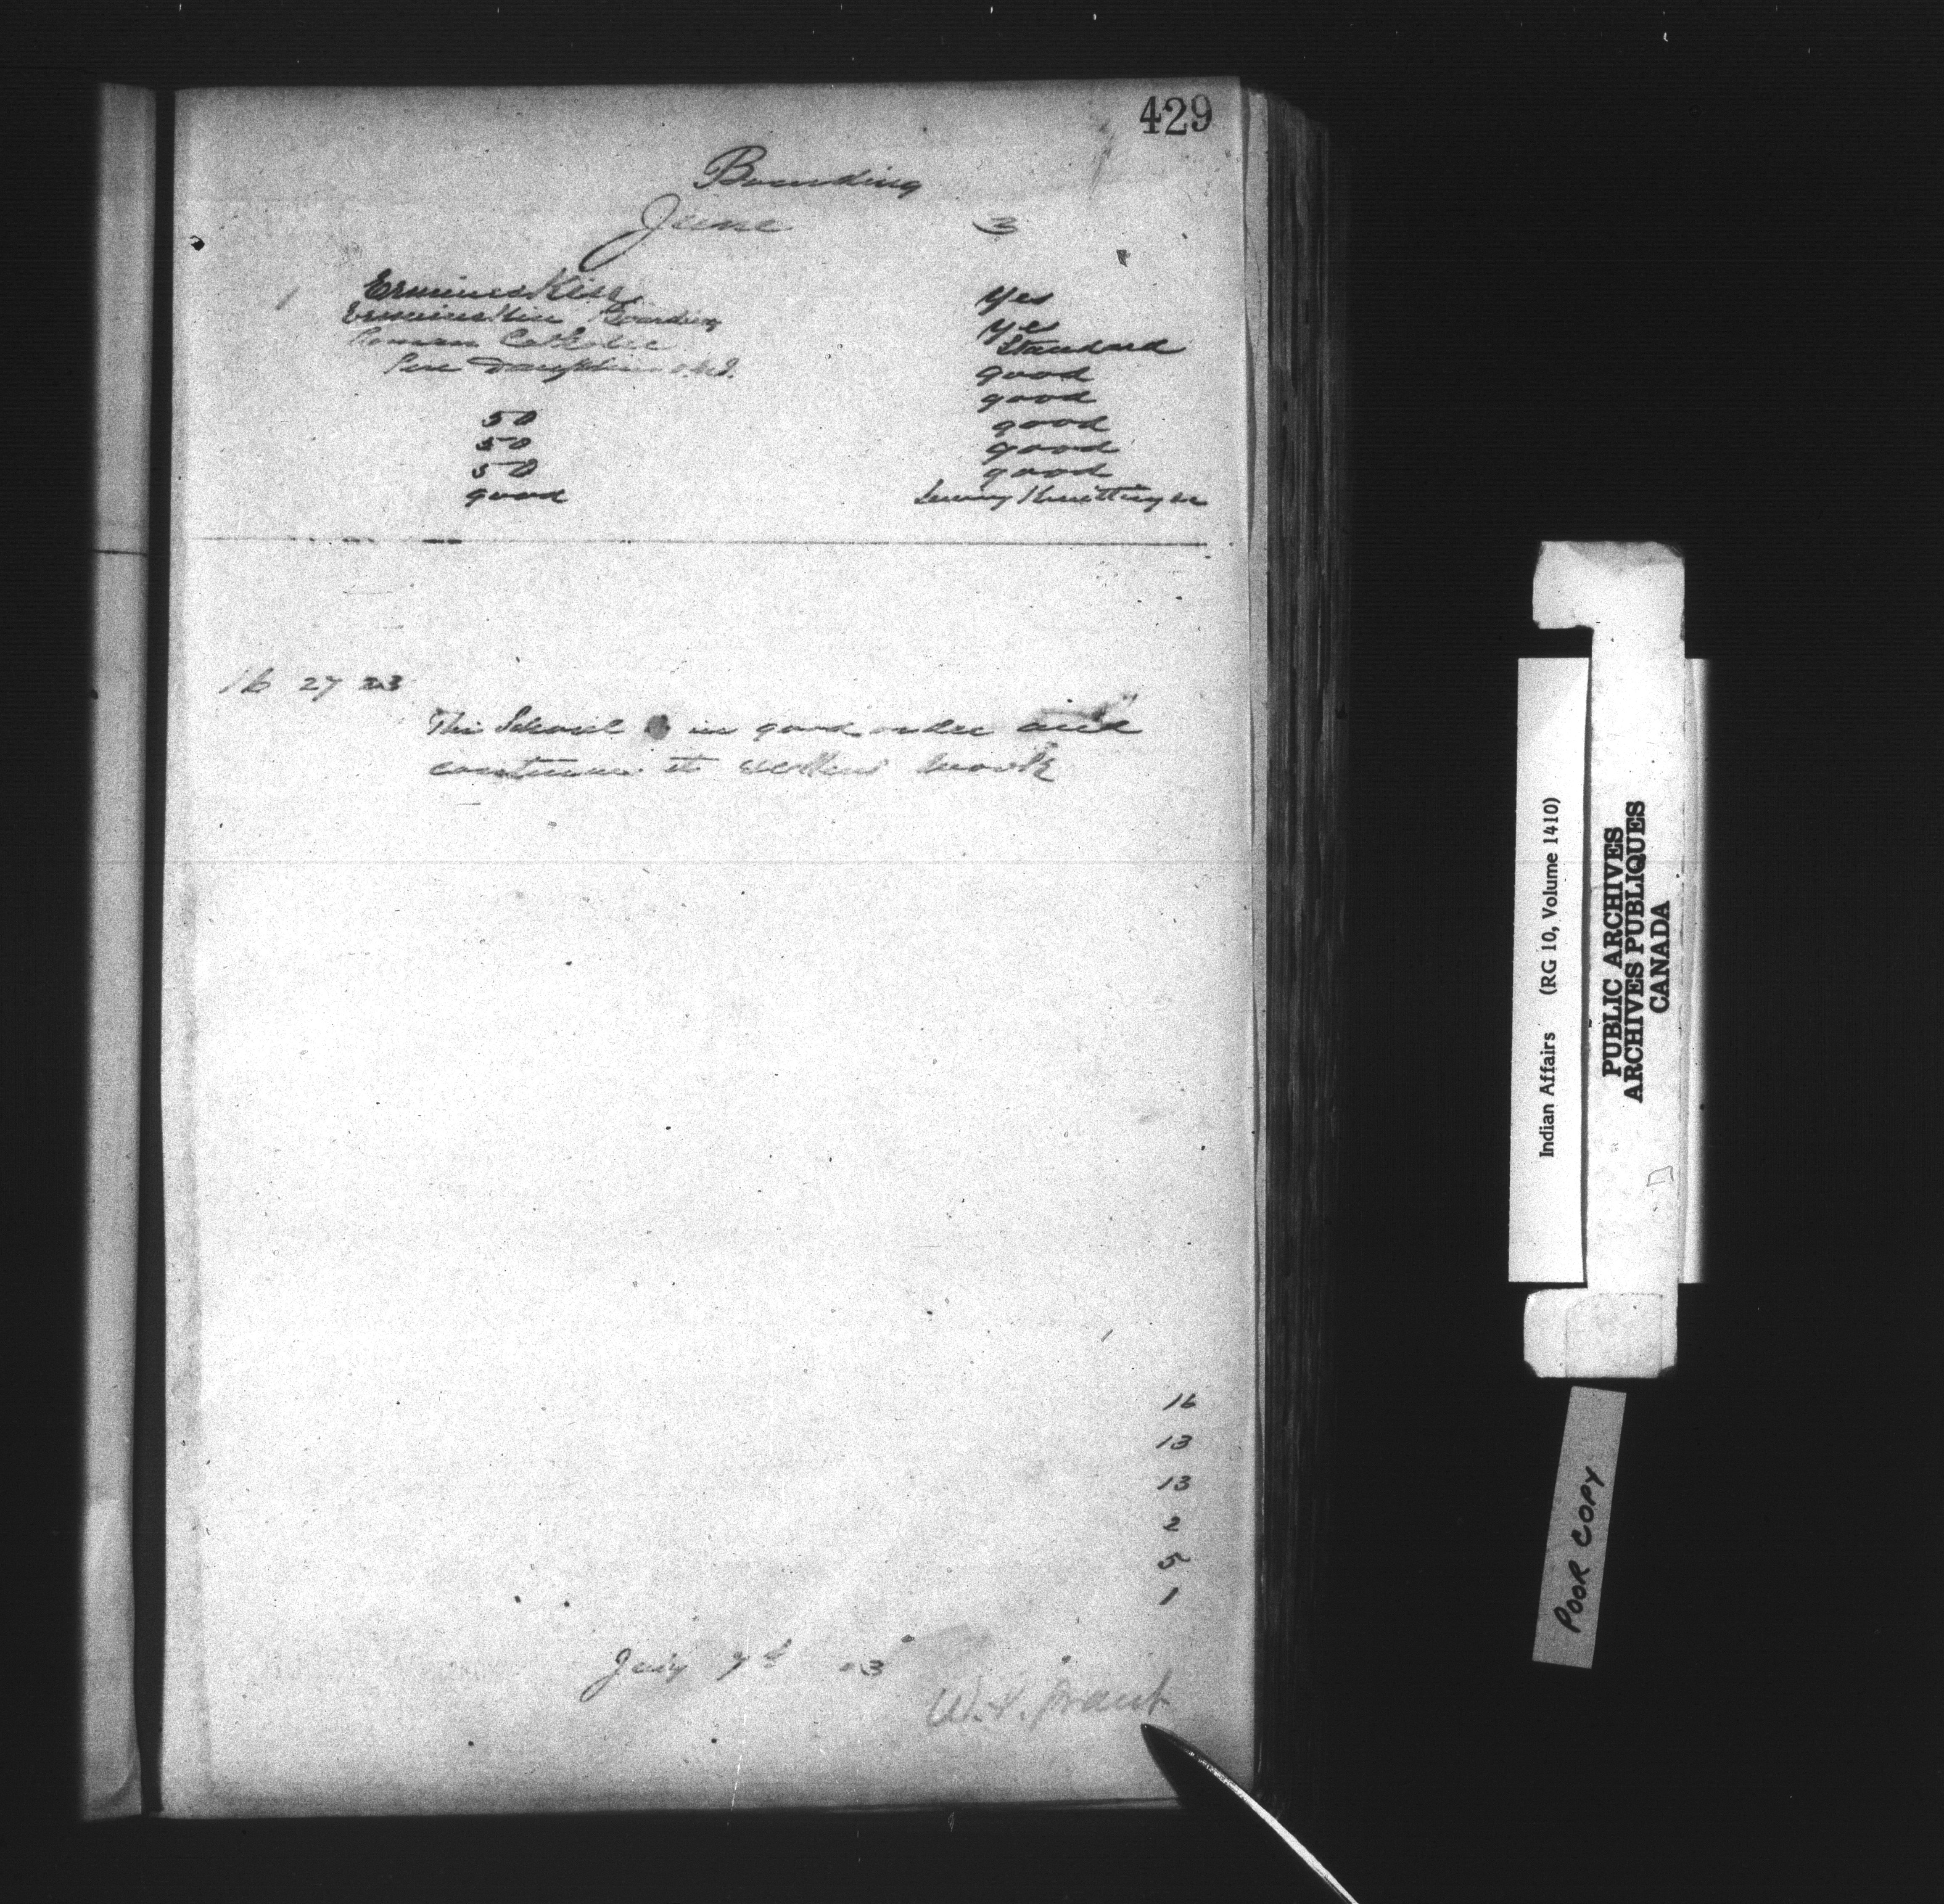 429
Boarding
June 3
1 Ermineskin yes
Ermineskin Boarding yes
Roman Catholic Standard
Pere O.M.I. good
good
50 good
50 good
50 good
good Sewing Knitting &c
16 27 23
The School is in good order and
continues its excellent work
1
16
13
13
2
5
1
July 7th 03
W. S. Grant
Indian Affairs (RG 10, Volume 1410)
PUBLIC ARCHIVES
ARCHIVES PUBLIQUES
CANADA
POOR COPY